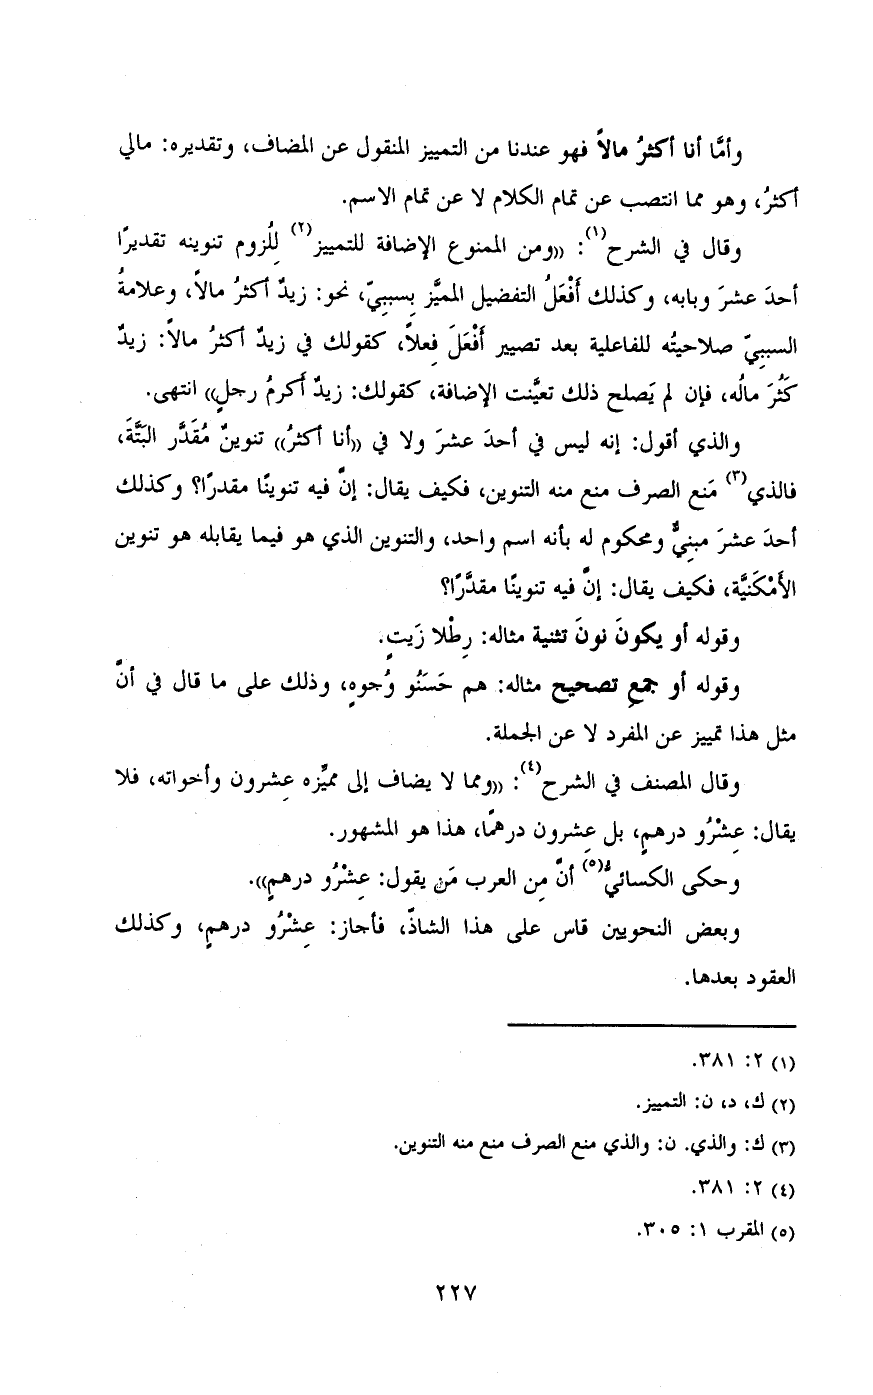 وأمَّا أنا أكثرُ مالاً فهو عندنا من التمييز المنقول عن المضاف، وتقديره: مالي
أكثرُ، وهو مما انتصب عن تمام الكلام لا عن تمام الاسم.
وقال في الشرح(١): ((ومن الممنوع الإضافة للتمييز(٢) لِلُزوم تنوينه تقديرًا
أحدَ عشرَ وبابه، وكذلك أَفْعَلُ التفضيل المميَّز بِسببيّ، نحو: زيدٌ أكثرُ مالاً، وعلامةُ
السببِيّ صلاحيتُه للفاعلية بعد تصيير أَفْعَلَ فِعلاً، كقولك في زيدٌ أكثرُ مالاً: زيدٌ
كَثُرَ مالُه، فإن لم يَصلح ذلك تعيَّنت الإضافة، كقولك: زيدٌ أَكرمُ رجلٍ)) انتهى.
والذي أقول: إنه ليس في أحدَ عشرَ ولا في ((أنا أكثرُ)) تنوينٌ مُقَدَّر البَتَّةَ،
فالذي(٣) مَنع الصرف منع منه التنوين، فكيف يقال: إنَّ فيه تنوينًا مقدرًا؟ وكذلك
أحدَ عشرَ مبنِيٌّ ومحكوم له بأنه اسم واحد، والتنوين الذي هو فيما يقابله هو تنوين
الأَمْكَنيَّة، فكيف يقال: إنَّ فيه تنوينًا مقدَّرًا؟
وقوله أو يكونَ نونَ تثنية مثاله: رِطْلا زَيتٍ.
وقوله أو جمعِ تصحيح مثاله: هم حَسَنُو وُجوهٍ، وذلك على ما قال في أنَّ
مثل هذا تمييز عن المفرد لا عن الجملة.
وقال المصنف في الشرح(٤): ((ومما لا يضاف إلى مميِّزه عِشرون وأخواته، فلا
يقال: عِشْرُو درهمٍ، بل عِشرون درهمًا، هذا هو المشهور.
وحكى الكسائيُّ(٥) أنَّ مِن العرب مَن يقول: عِشْرُو درهمٍ)).
وبعض النحويين قاس على هذا الشاذّ، فأجاز: عِشْرُو درهمٍ، وكذلك
العقود بعدها.
(١) ٢: ٣٨١.
(٢) ك، د، ن: التمييز.
(٣) ك: والذي. ن: والذي منع الصرف منع منه التنوين.
(٤) ٢: ٣٨١.
(٥) المقرب ١: ٣٠٥.
٢٢٧